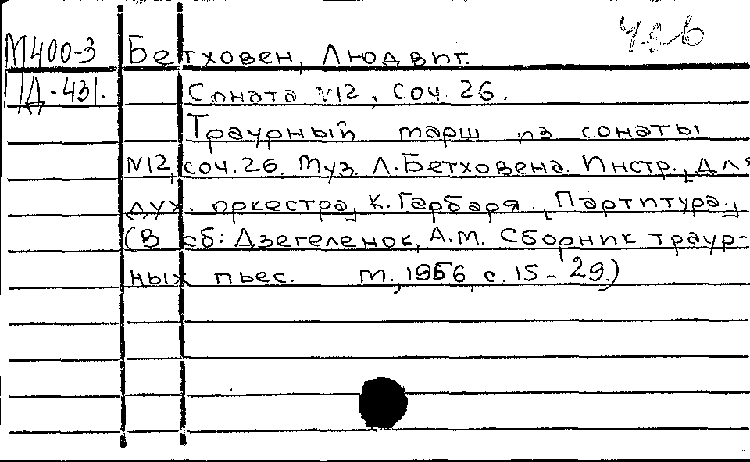 М400-3 Бетховен, Людвиг.
Д-431. Соната N12, соч. 26.
Траурный марш из сонаты
N12, соч. 26. Муз. Л. Бетховена. Инстр. для
дух. оркестра К. Гарбаря. Партитура.
(В сб: Дзегеленок, А.М. Сборник траур-
ных пьес. М., 1956, с. 15-29.)